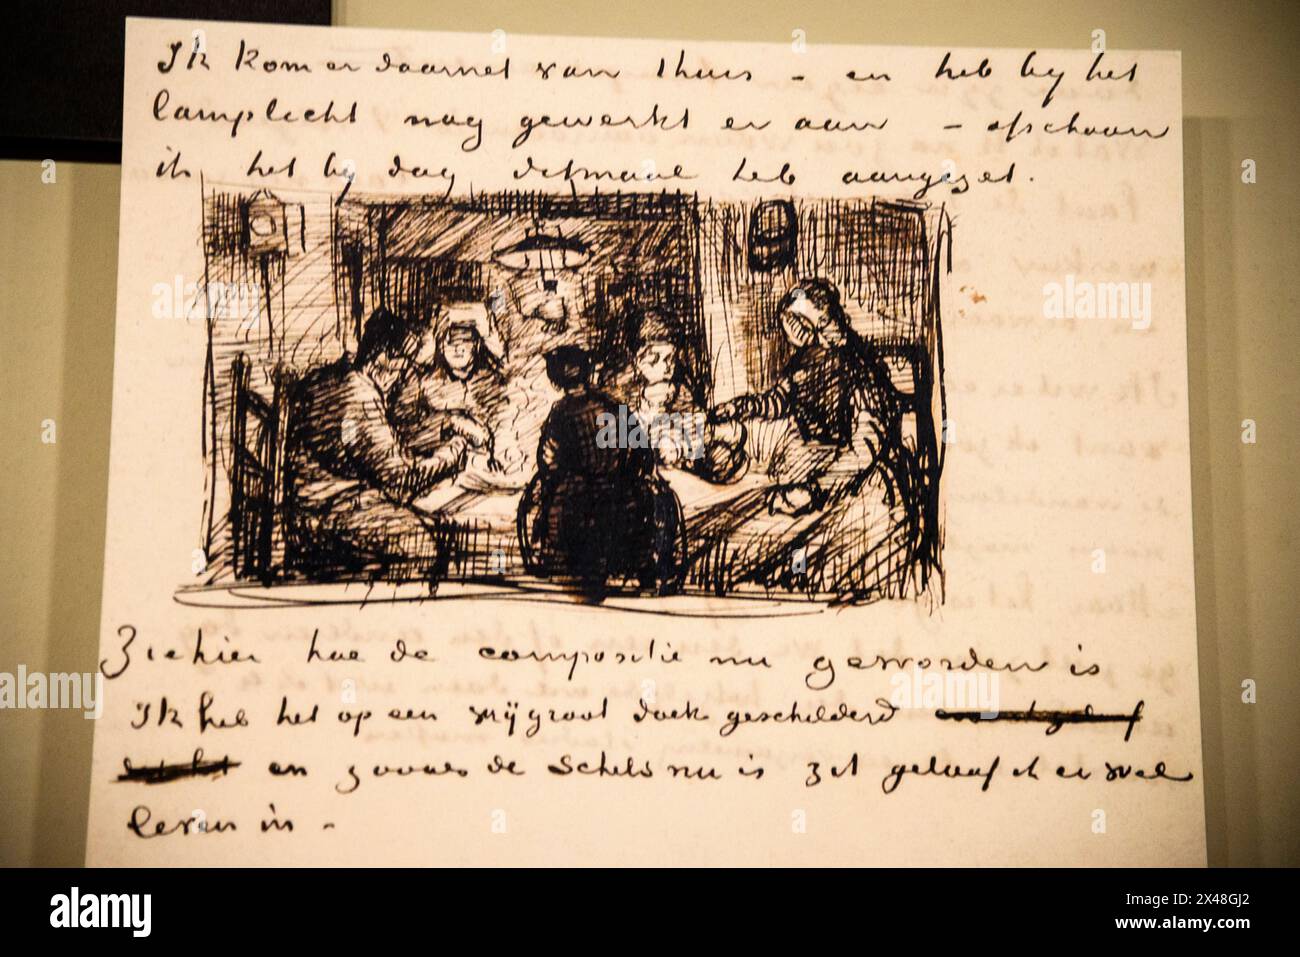 Ik kom er daarnet van thuis – en heb bij het
lamplicht nog gewerkt er aan – ofschoon
ik het bij dag ditmaal heb aangezet.
Ziehier hoe de compositie nu geworden is
Ik heb het op een vrij groot doek geschilderd
en zooals de schets nu is zit geloof ik er wel
leven in –
alamy
Image ID: 2X48GJ2
www.alamy.com